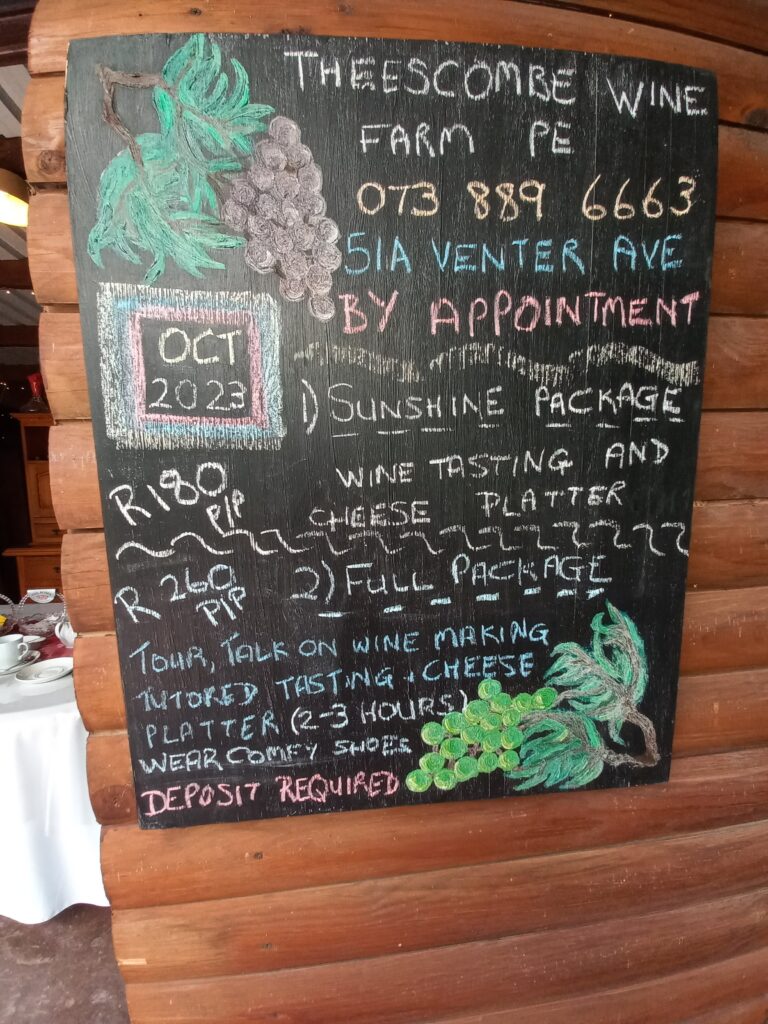 THEESCOMBE WINE
FARM PE
073 889 6663
51A VENTER AVE
BY APPOINTMENT
OCT
2023
1) SUNSHINE PACKAGE
R180
P/P
WINE TASTING AND
CHEESE PLATTER
R 260
P/P
2) FULL PACKAGE
TOUR, TALK ON WINE MAKING
TUTORED TASTING + CHEESE
PLATTER (2-3 HOURS)
WEAR COMFY SHOES
DEPOSIT REQUIRED